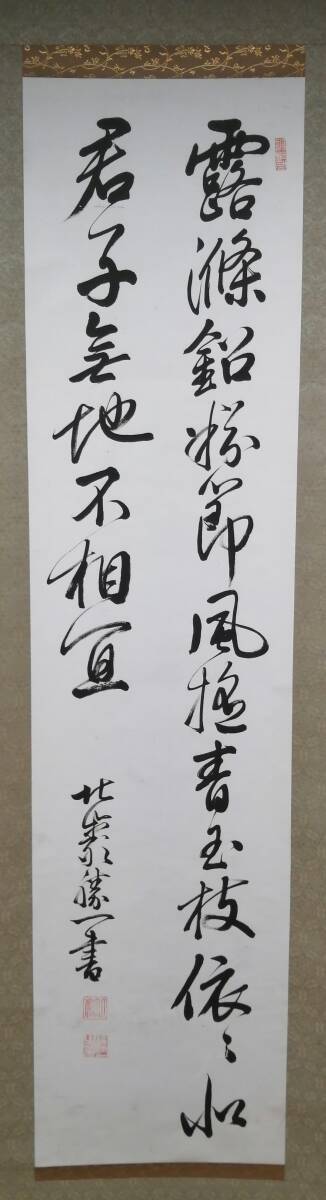 露滌鉛粉節風揺青玉枝依〻似
君子無地不相宜
北嶽勝一書